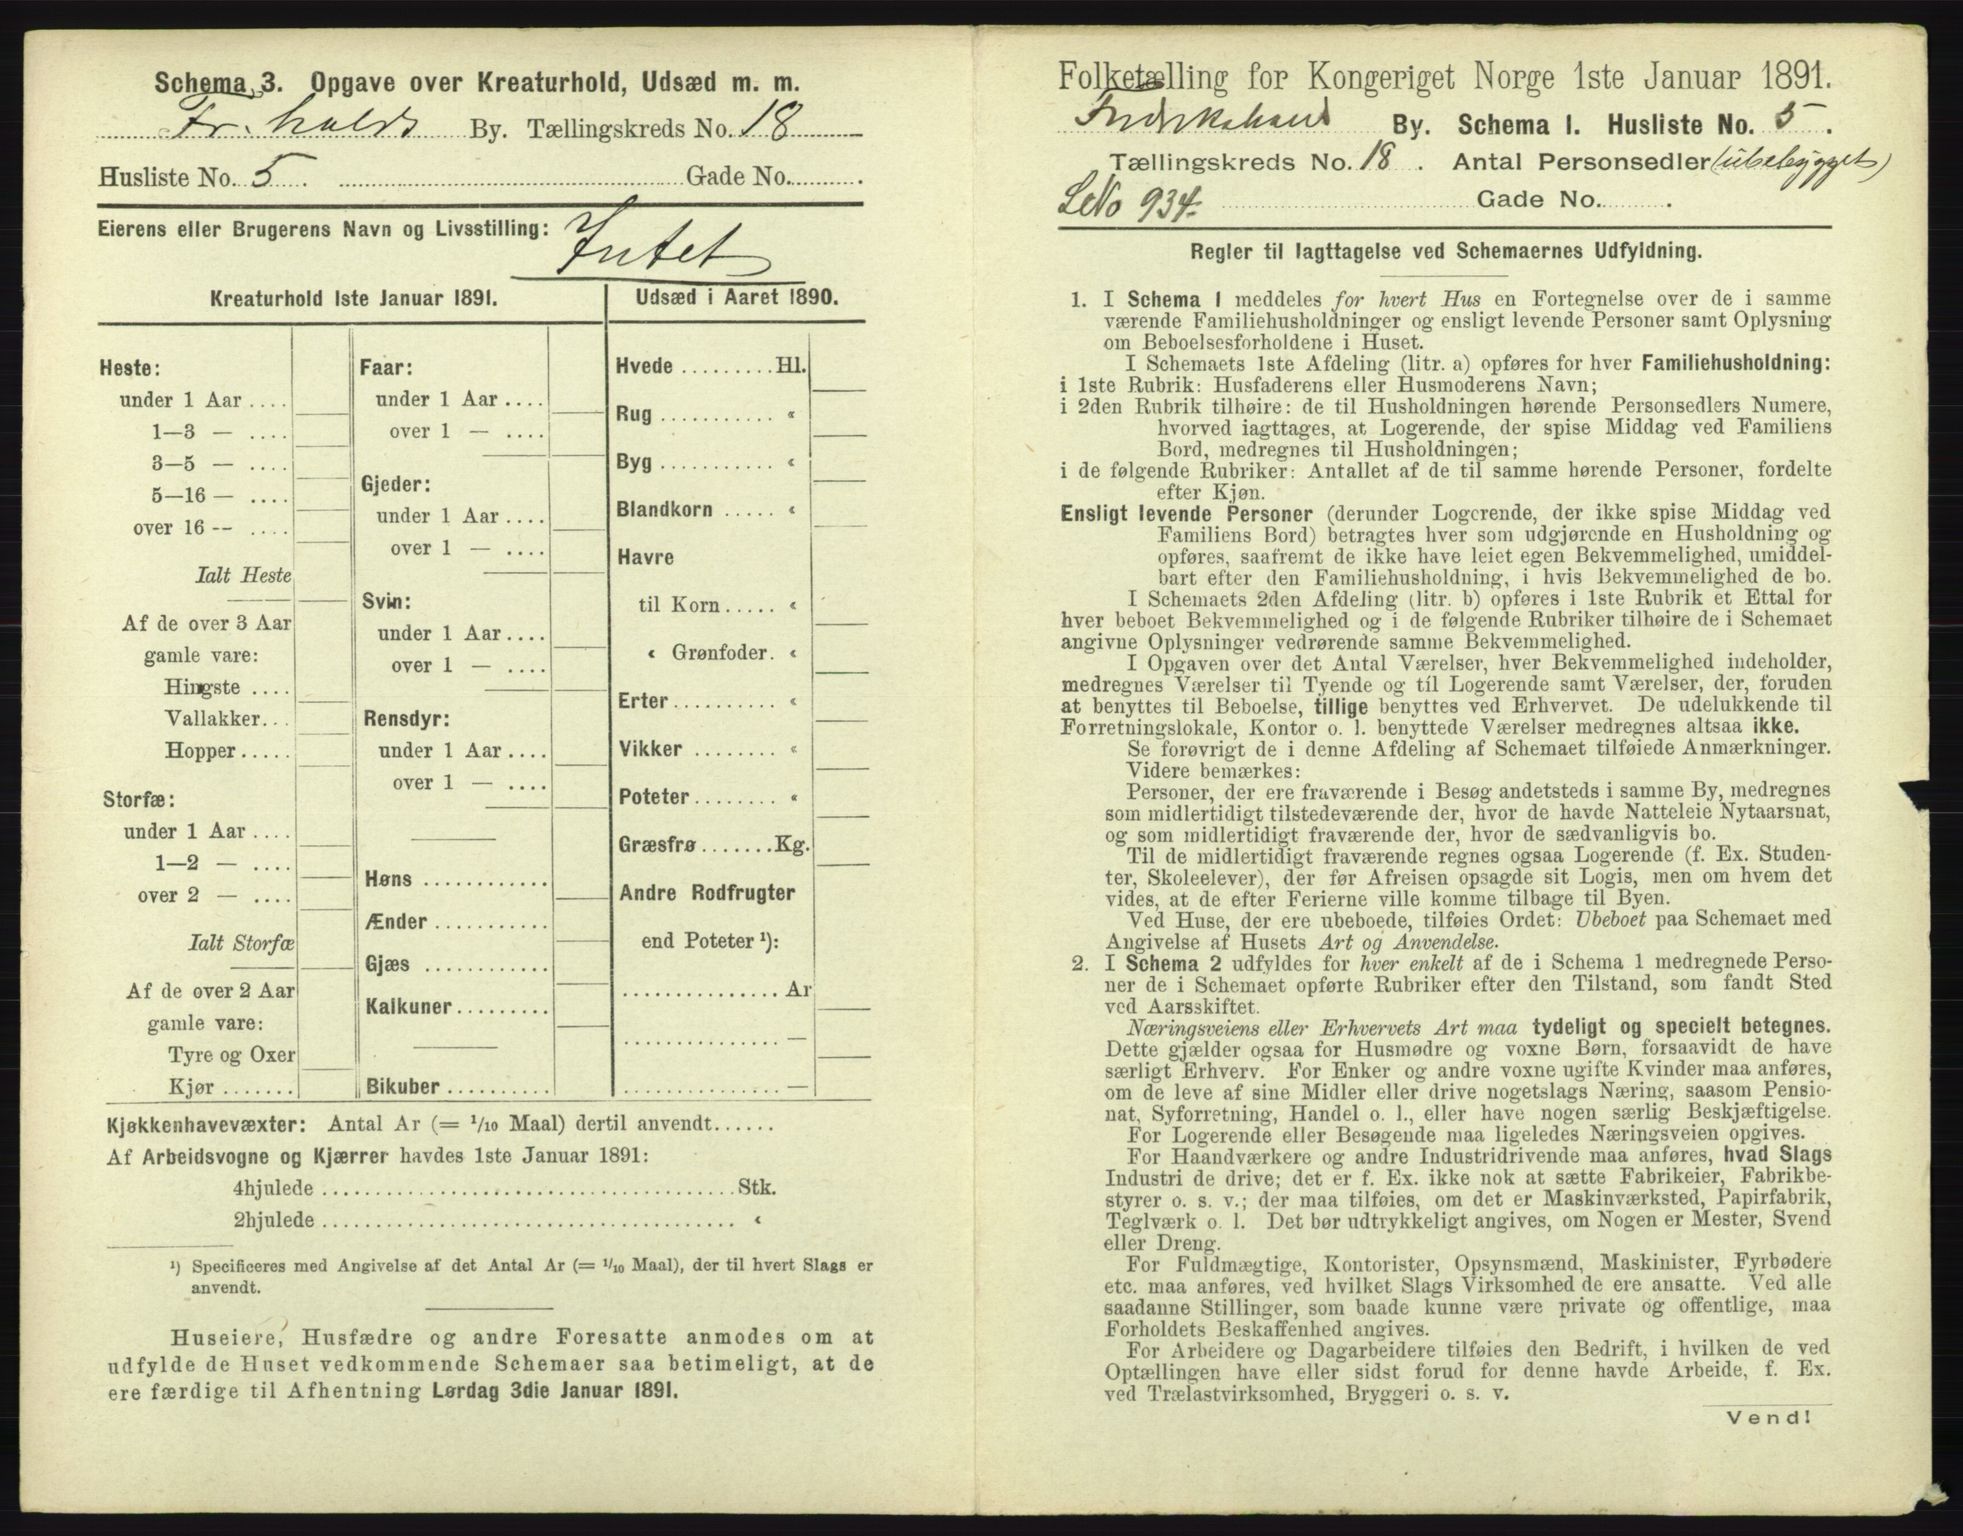 Schema 3. Opgave over Kreaturhold, Udsæd m. m.
Fr.halds By. Tællingskreds No. 18
Husliste No. 5. Gade No.
Eierens eller Brugerens Navn og Livsstilling: Intet
Kreaturhold 1ste Januar 1891.
Heste:
under 1 Aar ....
1—3 — ....
3—5 — ....
5—16 — ....
over 16 -- ....
Ialt Heste
Af de over 3 Aar
gamle vare:
Hingste ....
Vallakker...
Hopper.....
Storfæ:
under 1 Aar....
1—2 — ....
over 2 — ....
Ialt Storfæ
Af de over 2 Aar
gamle vare:
Tyre og Oxer
Kjør .......
Faar:
under 1 Aar ....
over 1 — ....
Gjeder:
under 1 Aar ....
over 1 — ....
Svin:
under 1 Aar ....
over 1 — ....
Rensdyr:
under 1 Aar ....
over 1 — ....
Høns ............
Ænder ...........
Gjæs ............
Kalkuner.........
Bikuber ..........
Udsæd i Aaret 1890.
Hvede .........Hl.
Rug ........... «
Byg ........... «
Blandkorn ..... «
Havre
til Korn ..... «
« Grønfoder. «
Erter.......... «
Vikker ........ «
Poteter........ «
Græsfrø.......Kg.
Andre Rodfrugter
end Poteter ¹):
............... Ar
............... —
............... —
Kjøkkenhavevæxter: Antal Ar (= 1/10 Maal) dertil anvendt......
Af Arbeidsvogne og Kjærrer havdes 1ste Januar 1891:
4hjulede ........................................Stk.
2hjulede ........................................ «
¹) Specificeres med Angivelse af det Antal Ar (= 1/10 Maal), der til hvert Slags er
anvendt.
Huseiere, Husfædre og andre Foresatte anmodes om at
udfylde de Huset vedkommende Schemaer saa betimeligt, at de
ere færdige til Afhentning Lørdag 3die Januar 1891.
Folketælling for Kongeriget Norge 1ste Januar 1891.
Fredrikshald By. Schema I. Husliste No. 5.
Tællingskreds No. 18. Antal Personsedler (ubebygget)
LeNo 934. Gade No.
Regler til Iagttagelse ved Schemaernes Udfyldning.
1. I Schema 1 meddeles for hvert Hus en Fortegnelse over de i samme
værende Familiehusholdninger og ensligt levende Personer samt Oplysning
om Beboelsesforholdene i Huset.
I Schemaets 1ste Afdeling (litr. a) opføres for hver Familiehusholdning:
i 1ste Rubrik: Husfaderens eller Husmoderens Navn;
i 2den Rubrik tilhøire: de til Husholdningen hørende Personsedlers Numere,
hvorved iagttages, at Logerende, der spise Middag ved Familiens
Bord, medregnes til Husholdningen;
i de følgende Rubriker: Antallet af de til samme hørende Personer, fordelte
efter Kjøn.
Ensligt levende Personer (derunder Logerende, der ikke spise Middag ved
Familiens Bord) betragtes hver som udgjørende en Husholdning og
opføres, saafremt de ikke have leiet egen Bekvemmelighed, umiddel-
bart efter den Familiehusholdning, i hvis Bekvemmelighed de bo.
I Schemaets 2den Afdeling (litr. b) opføres i 1ste Rubrik et Ettal for
hver beboet Bekvemmelighed og i de følgende Rubriker tilhøire de i Schemaet
angivne Oplysninger vedrørende samme Bekvemmelighed.
I Opgaven over det Antal Værelser, hver Bekvemmelighed indeholder,
medregnes Værelser til Tyende og til Logerende samt Værelser, der, foruden
at benyttes til Beboelse, tillige benyttes ved Erhvervet. De udelukkende til
Forretningslokale, Kontor o. l. benyttede Værelser medregnes altsaa ikke.
Se forøvrigt de i denne Afdeling af Schemaet tilføiede Anmærkninger.
Videre bemærkes:
Personer, der ere fraværende i Besøg andetsteds i samme By, medregnes
som midlertidigt tilstedeværende der, hvor de havde Natteleie Nytaarsnat,
og som midlertidigt fraværende der, hvor de sædvanligvis bo.
Til de midlertidigt fraværende regnes ogsaa Logerende (f. Ex. Studen-
ter, Skoleelever), der før Afreisen opsagde sit Logis, men om hvem det
vides, at de efter Ferierne ville komme tilbage til Byen.
Ved Huse, der ere ubeboede, tilføies Ordet: Ubeboet paa Schemaet med
Angivelse af Husets Art og Anvendelse.
2. I Schema 2 udfyldes for hver enkelt af de i Schema 1 medregnede Perso-
ner de i Schemaet opførte Rubriker efter den Tilstand, som fandt Sted
ved Aarsskiftet.
Næringsveiens eller Erhvervets Art maa tydeligt og specielt betegnes.
Dette gjælder ogsaa for Husmødre og voxne Børn, forsaavidt de have
særligt Erhverv. For Enker og andre voxne ugifte Kvinder maa anføres,
om de leve af sine Midler eller drive nogetslags Næring, saasom Pensio-
nat, Syforretning, Handel o. l., eller have nogen særlig Beskjæftigelse.
For Logerende eller Besøgende maa ligeledes Næringsveien opgives.
For Haandværkere og andre Industridrivende maa anføres, hvad Slags
Industri de drive; det er f. Ex. ikke nok at sætte Fabrikeier, Fabrikbe-
styrer o. s. v.; der maa tilføies, om det er Maskinværksted, Papirfabrik,
Teglværk o. l. Det bør udtrykkeligt angives, om Nogen er Mester, Svend
eller Dreng.
For Fuldmægtige, Kontorister, Opsynsmænd, Maskinister, Fyrbødere
etc. maa anføres, ved hvilket Slags Virksomhed de ere ansatte. Ved alle
saadanne Stillinger, som baade kunne være private og offentlige, maa
Forholdets Beskaffenhed angives.
For Arbeidere og Dagarbeidere tilføies den Bedrift, i hvilken de ved
Optællingen have eller sidst forud for denne havde Arbeide, f. Ex.
ved Trælastvirksomhed, Bryggeri o. s. v.
Vend!